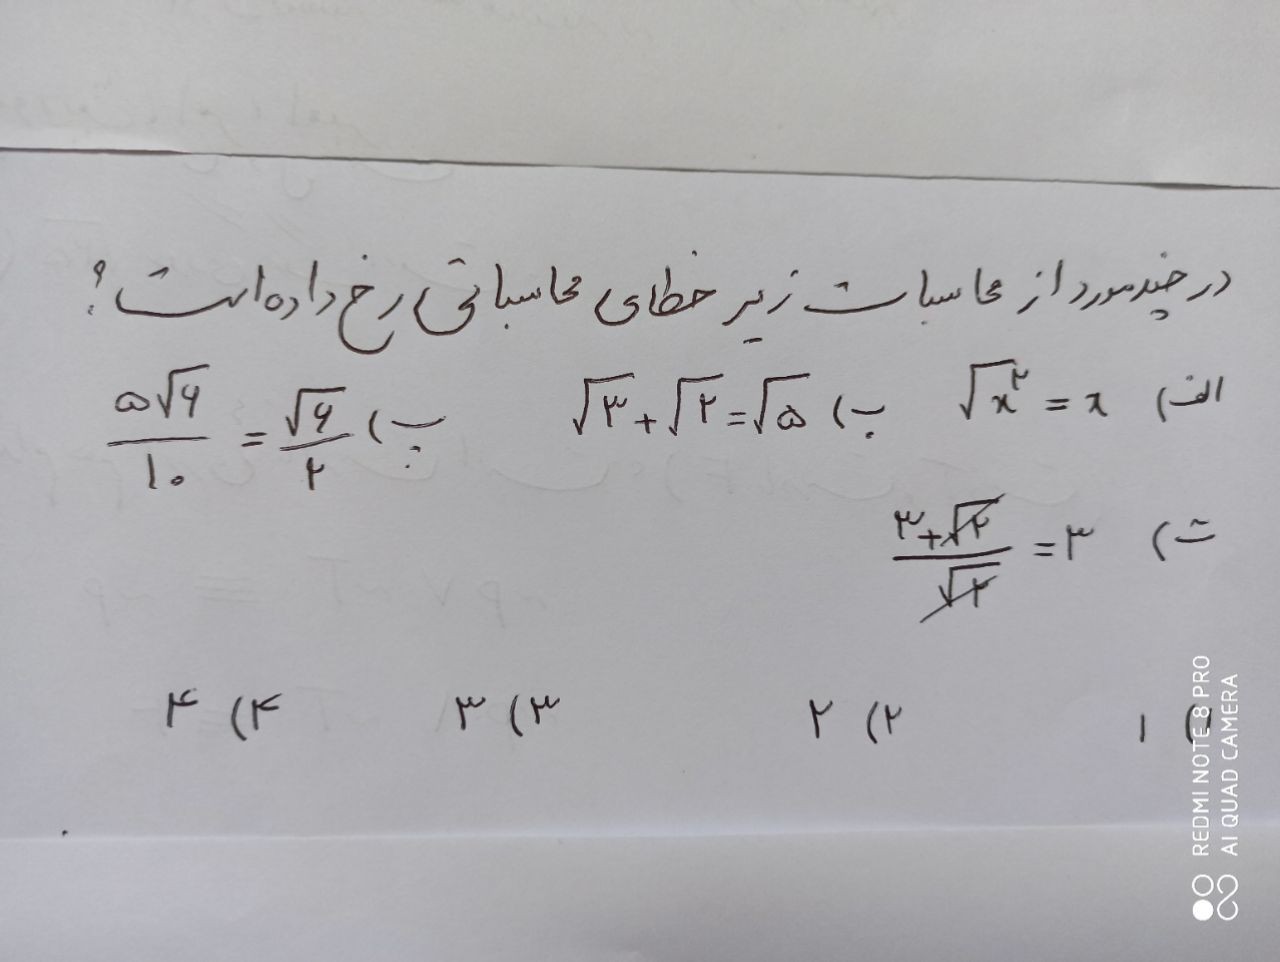 در چند مورد از محاسبات زیر خطای محاسباتی رخ داده است؟
الف) √x^۲ = x ب) √۳ + √۲ = √۵ پ) ۵√۶/۱۰ = √۶/۲
ت) ۳+√۲/√۲ = ۳
۱) ۱ ۲) ۲ ۳) ۳ ۴) ۴
REDMI NOTE 8 PRO
AI QUAD CAMERA